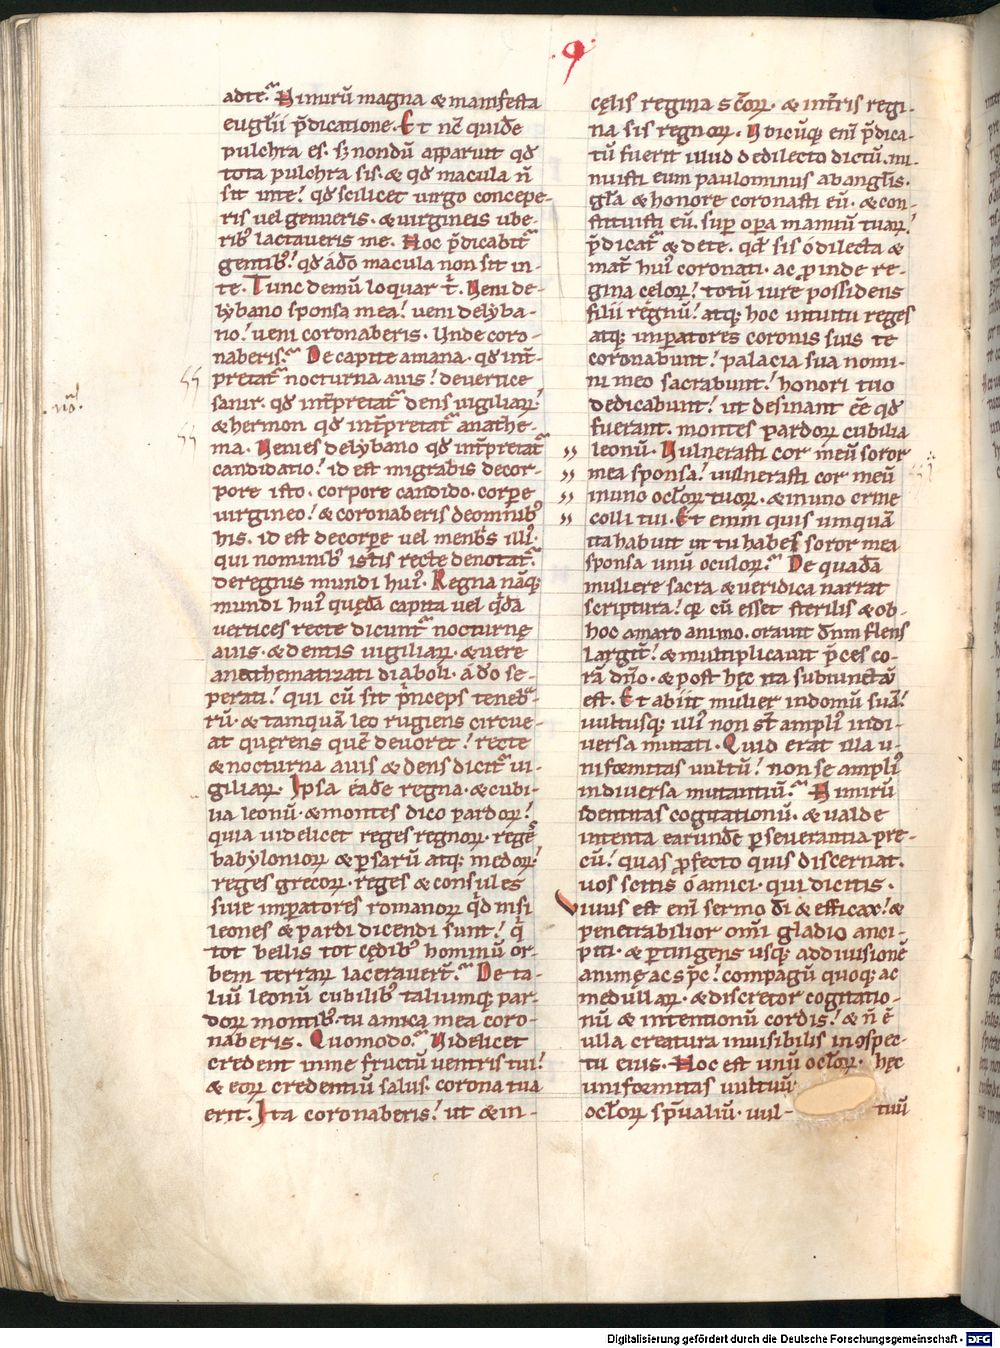 ꝯ
adte. Nimirū magna & manifesta
euglii p̄dicatione. Et nc̄ quidē
pulchra es. sʒ nondū apparuit qđ
tota pulchra sis. & qđ macula n̄
sit inte! qđ scilicet virgo concepe-
ris uel genueris. & uirgineis ube-
ribꝰ lactaueris me. Hoc p̄dicabit᷑
gentibꝰ! qđ ádō macula non sit in-
te. Tunc demū loquar t̄. Veni de-
lybano sponsa mea! ueni delyba-
no! ueni coronaberis. Unde coro-
naberis. De capite amana. qđ int̄-
pretat᷑ nocturna auis! deuertice
sanir. qđ int̄pretat᷑ dens uigiliaꝝ!
& hermon qđ int̄pretat᷑ anathe-
ma. Venies delybano qđ int̄pretat᷑
candidatio! id est migrabis decor-
pore isto. corpore candido. corpe
uirgineo! & coronaberis deomnibꝰ
his. id est decorpe uel menbris illiꝰ.
qui nominibꝰ istis recte denotat᷑.
deregnis mundi huiꝰ. Regna nāqꝫ
mundi huiꝰ quędā capita uel q̇dā
uertices recte dicunt᷑ nocturnę
auis. & dentis uigiliaꝝ. & uere
anathematizati diaboli. ádō se-
perati! qui cū sit p̄nceps teneb᷑-
rū. & tamquā leo rugiens circue-
at quęrens quē deuoret! recte
& nocturna auis & dens dicit᷑ ui-
giliaꝝ. Ipsa eadē regna. & cubi-
lia leonū. & montes dico pardoꝝ!
quia uidelicet reges regnoꝝ. regē
babylonioꝝ & psarū atqꝫ medoꝝ!
reges grecoꝝ. reges & consules
siue impatores romanoꝝ qđ nisi
leones & pardi dicendi sunt! q̄
tot bellis tot cędibꝰ hominū or-
bem terraꝝ lacerauert̄. De ta-
liū leonū cubilibꝰ taliumqꝫ par-
doꝝ montibꝰ. tu amica mea coro-
naberis. Quomodo. Videlicet
credent inme fructū uentris tui!
& eoꝝ credentiū salus. corona tua
erit. Ita coronaberis! ut & in-
cęlis regina sc̄oꝝ. & int̄ris regi-
na sis regnoꝝ. Ubicūqꝫ eni p̄dica-
tū fuerit illud dedilecto dictū. mi-
nuisti eum paulominus abanglis.
gl̄a & honore coronasti eū. & con-
stituisti eū. sup opa manuū tuaꝝ!
p̄dicat᷑ & dete. qđ sis ó dilecta &
mat̄ huiꝰ coronati. ac proinde re-
gina cęloꝝ! totū iure possidens
filii regnū! atqꝫ hoc intuitu reges
atqꝫ impatores coronis suis te
coronabunt! palacia sua nomi-
ni meo sacrabunt! honori tuo
dedicabunt! ut desinant eē qđ
fuerant. montes pardoꝝ cubilia
leonū. Vulnerasti cor meū soror
mea sponsa! uulnerasti cor meū
inuno ocloꝝ tuoꝝ. & inuno crine
colli tui. Et enim quis umquā
ita habuit ut tu habes soror mea
sponsa unū oculoꝝ. De quadā
muliere sacra & ueridica narrat
scriptura! qꝫ cū esset sterilis & ob-
hoc amaro animo. orauit dn̄m flens
largit᷑! & multiplicauit p̄ces co-
rā dn̄o. & post hęc ita subiunctū
est. Et abiit mulier indomū suā!
uultusqꝫ illiꝰ non st̄ ampliꝰ indi-
uersa mutati. Quid erat illa u-
niformitas uultū! non se ampliꝰ
indiuersa mutantiū. Nimirū
identitas cogitationū. & ualde
intenta earundē pseuerantia pre-
cū! quas pfecto quis discernat.
uos scitis ó amici. qui dicitis.
Viuus est eni sermo di & efficax! &
penetrabilior om̄i gladio anci-
piti. & ptingens usqꝫ addiuisionē
animę ac sp̄c! compagū quoqꝫ ac
medullaꝝ. & discretor cogitatio-
nū & intentionū cordis! & n̄ ē
ulla creatura inuisibilis inospec-
tu eius. Hoc est unū ocloꝝ. hęc
uniformitas uultuū
ocloꝝ sp̄ualiū. uul- tuū
Digitalisierung gefördert durch die Deutsche Forschungsgemeinschaft - DFG